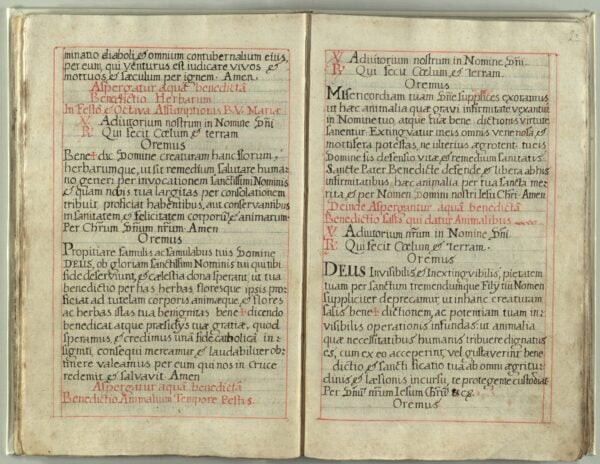 minatio diaboli, & omnium contubernalium eius,
per eum, qui venturus est iudicare vivos &
mortuos & sæculum per ignem. Amen.
Aspergatur aquâ benedictâ
Benedictio Herbarum
In Festo & Octava Assumptionis B.V. Mariæ
V. Adiutorium nostrum in Nomine Dñi
R. Qui fecit Cœlum, & terram
Oremus
Bene+dic Domine creaturam hanc florum,
herbarumque, ut sit remedium salutare huma-
no generi per invocationem Sanctissimi Nominis
& quam nobis tua largitas per consolationem
tribuit, proficiat habentibus, aut conservantibus
in sanitatem, & felicitatem corporum, & animarum.
Per Chrum Dñum nrum. Amen
Oremus
Propitiare famulis, ac famulabus tuis Domine
DEUS, ob gloriam sanctissimi Nominis tui qui tibi
fide deserviunt, & cælestia dona sperant, ut tua
benedictio per has herbas, floresque ipsis pro-
ficiat ad tutelam corporis animæque, & flores
ac herbas istas tua benignitas bene+dicendo
benedicat, atque præsidijs tuæ gratiæ, quod
speramus, & credimus unâ fide catholica in-
signiti, consequi mereamur, & laudabiliter ob-
tinere valeamus per eum qui nos in cruce
redemit, & salvavit. Amen
Aspergatur aquâ benedictâ
Benedictio Animalium Tempore Pestis.
V. Adiutorium nostrum in Nomine Dñi.
R. Qui fecit Cœlum, & terram.
Oremus
Misericordiam tuam Dñe supplices exoramus
ut hæc animalia, quæ gravi infirmitate vexantur
in Nomine tuo, atque tuæ bene+dictionis virtute
sanentur. Extinguatur in eis omnis venenosa, &
mortifera potestas, ne ulterius ægrotent. tu eis
Domine sis defensio vitæ, & remedium sanitatis
Sancte Pater Benedicte defende, & libera ab his
infirmitatibus hæc animalia per tua sancta me-
rita, & per Nomen Domini nostri Iesu Chri. Amen
Deinde Aspergantur aquâ benedictâ
Benedictio salis qui datur Animalibus
V. Adiutorium nrum in Nomine Dñi.
R. Qui fecit Cœlum, & terram.
Oremus
DEUS Invisibilis, & Inextinguibilis, pietatem
tuam per sanctum tremendumque Filij tui Nomen
suppliciter deprecamur, ut in hanc creaturam
salis bene+dictionem, ac potentiam tuam in-
visibilis operationis infundas, ut animalia
quæ necessitatibus humanis tribuere dignatus
es, cum ex eo acceperint, vel gustaverint bene-
dictio, & sanctificatio tua ab omni ægritu-
dinis, & læsionis incursu, te protegente custodiat
Per Dñm nrum Iesum Chrum &c.
Oremus